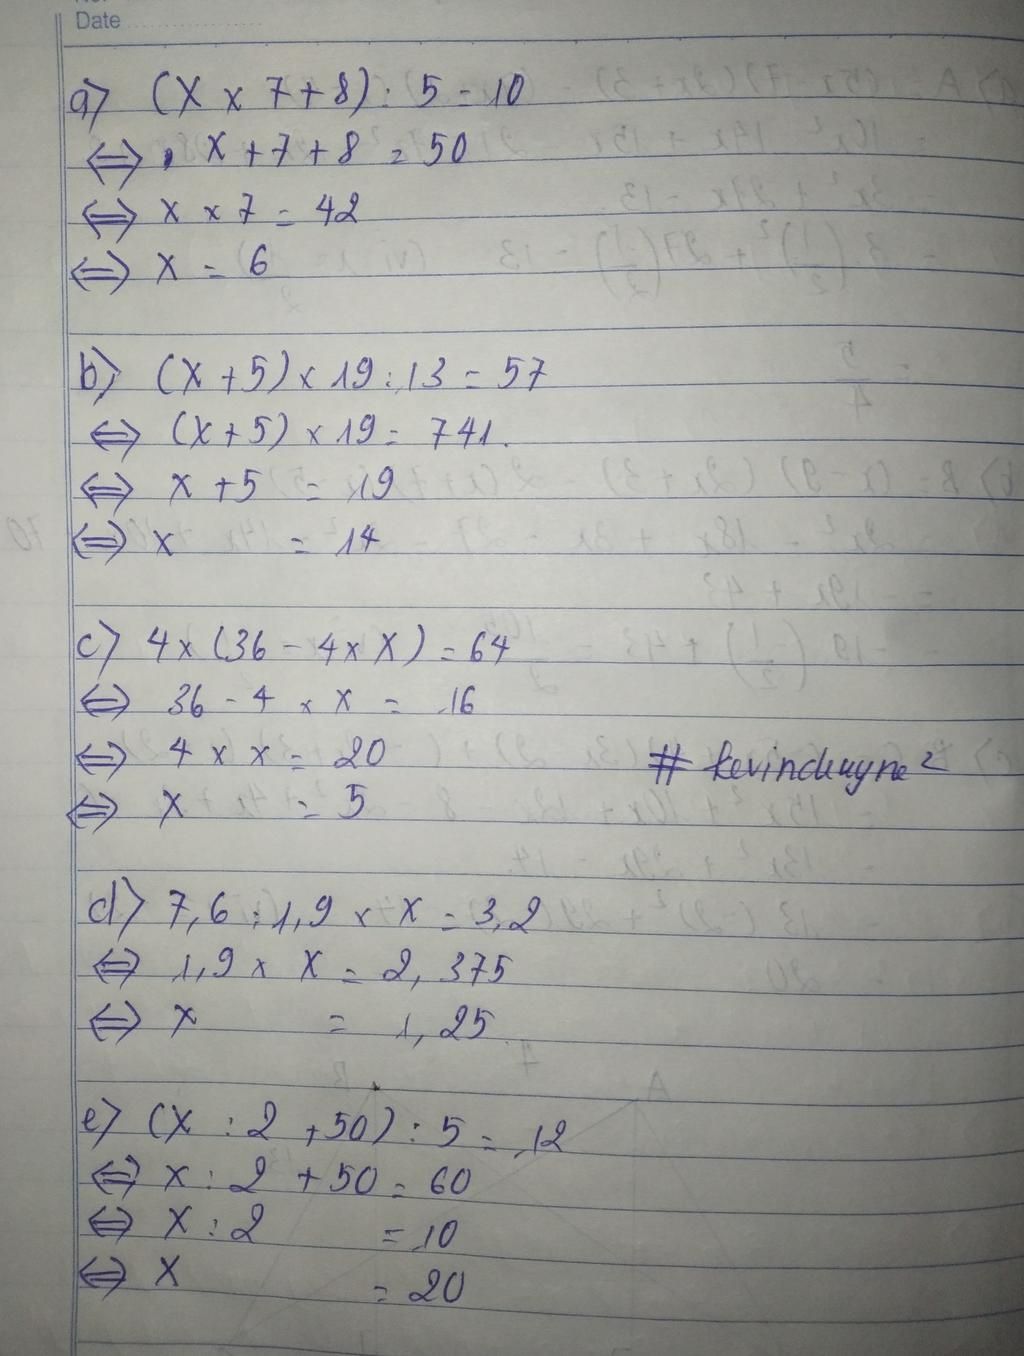 Date
a) (X x 7 + 8) : 5 = 10
⇔ X + 7 + 8 = 50
⇔ X x 7 = 42
⇔ X = 6
b) (X + 5) x 19 : 13 = 57
⇔ (X + 5) x 19 = 741.
⇔ X + 5 = 19
⇔ X = 14
c) 4 x (36 - 4 x X) = 64
⇔ 36 - 4 x X = 16
⇔ 4 x X = 20
# kevindwyne²
⇔ X = 5
d) 7,6 : 1,9 x X = 3,2
⇔ 1,9 x X = 2,375
⇔ X = 1,25
e) (X : 2 + 50) : 5 = 12
⇔ X : 2 + 50 = 60
⇔ X : 2 = 10
⇔ X = 20